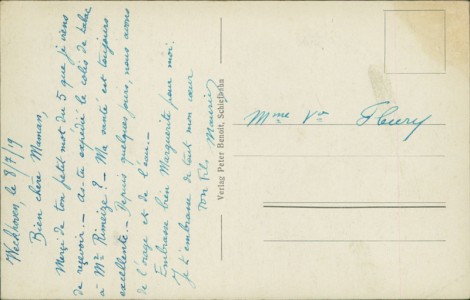 Weckhoven, le 8/7/19
Bien chère Maman,
Merci de ton petit mot du 5 que je viens
de recevoir. – As-tu expédié le colis de tabac
à Mr Rimeize ? – Ma santé est toujours
excellente. – Depuis quelques jours, nous avons
de l'orage et de l'eau. –
Embrasse bien Marguerite pour moi.
Je t'embrasse de tout mon cœur
Ton fils, Maurice
Verlag Peter Benoit, Schiefbahn
Mme Vve Fleury